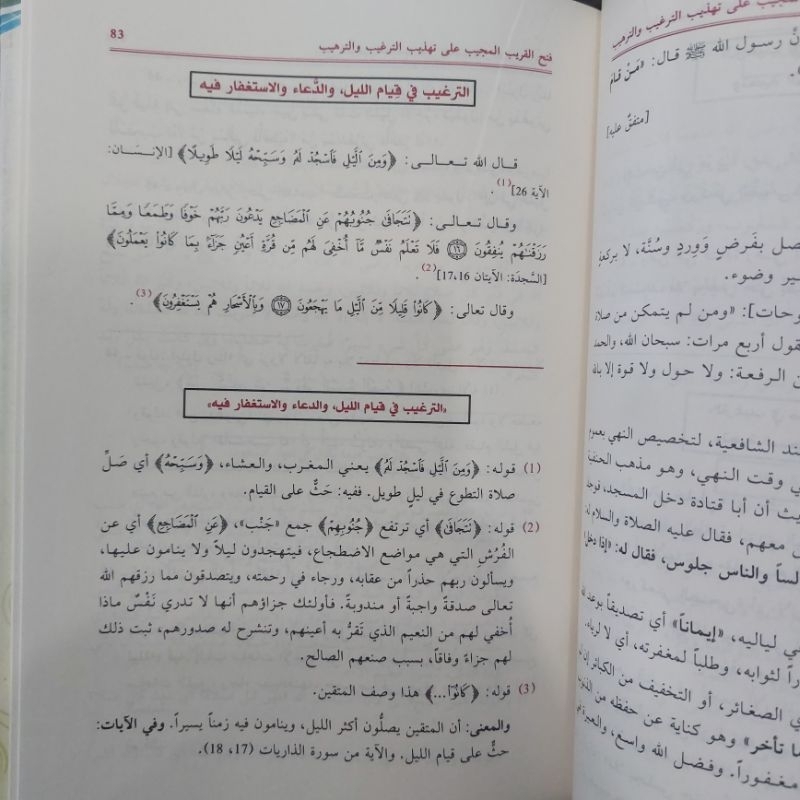 فتح القريب المجيب على تهذيب الترغيب والترهيب
83
الترغيب في قِيام الليل، والدُّعاء والاستغفار فيه
قال الله تعـالـى: ﴿وَمِنَ ٱلَّيْلِ فَٱسْجُدْ لَهُۥ وَسَبِّحْهُ لَيْلًا طَوِيلًا﴾ [الإنسَان:
الآية 26](1).
وقال تعـالـى: ﴿تَتَجَافَىٰ جُنُوبُهُمْ عَنِ ٱلْمَضَاجِعِ يَدْعُونَ رَبَّهُمْ خَوْفًا وَطَمَعًا وَمِمَّا
رَزَقْنَٰهُمْ يُنفِقُونَ ۝١٦ فَلَا تَعْلَمُ نَفْسٌ مَّآ أُخْفِىَ لَهُم مِّن قُرَّةِ أَعْيُنٍ جَزَآءًۢ بِمَا كَانُوا۟ يَعْمَلُونَ﴾
[السَّجدَة: الآيتان 17،16](2).
وقال تعالى: ﴿كَانُوا۟ قَلِيلًا مِّنَ ٱلَّيْلِ مَا يَهْجَعُونَ ۝١٧ وَبِٱلْأَسْحَارِ هُمْ يَسْتَغْفِرُونَ﴾(3).
«الترغيب في قيام الليل، والدعاء والاستغفار فيه»
(1) قوله: ﴿وَمِنَ ٱلَّيْلِ فَٱسْجُدْ لَهُۥ﴾ يعني المغرب، والعشاء، ﴿وَسَبِّحْهُ﴾ أي صَلِّ
صلاة التطوع في ليلٍ طويل. ففيه: حَثٌّ على القيام.
(2) قوله: ﴿تَتَجَافَىٰ﴾ أي ترتفع ﴿جُنُوبُهُمْ﴾ جمع «جَنْب»، ﴿عَنِ ٱلْمَضَاجِعِ﴾ أي عن
الفُرُشِ التي هي مواضع الاضطجاع، فيتهجدون ليلاً ولا ينامون عليها،
ويسألون ربهم حذراً من عقابه، ورجاء في رحمته، ويتصدقون مما رزقهم الله
تعالى صدقة واجبةً أو مندوبةً. فأولئك جزاؤهم أنها لا تدري نَفْسٌ ماذا
أُخفي لهم من النعيم الذي تَقرُّ به أعينهم، وتنشرح له صدورهم، ثبت ذلك
لهم جزاءً وفاقاً، بسبب صنعهم الصالح.
(3) قوله: ﴿كَانُوا۟...﴾ هذا وصف المتقين.
والمعنى: أن المتقين يصلُّون أكثر الليل، وينامون فيه زمناً يسيراً. وفي الآيات:
حثٌّ على قيام الليل. والآية من سورة الذاريات (17، 18).
على تهذيب الترغيب والترهيب
رسول الله ﷺ قال: «مَنْ قامَ
[متفقٌ عليه]
بفَرضٍ ووِردٍ وسُنَّة، لا بركعةٍ
وضوء.
«ومن لم يتمكن من صلاة
أربع مرات: سبحان الله، والحمد
الرفعة: ولا حول ولا قوة إلا بالله
الشافعية، لتخصيص النهي بعموم
وقت النهي، وهو مذهب الحنفية
أن أبا قتادة دخل المسجد، فوجد
معهم، فقال عليه الصلاة والسلام له
والناس جلوس، فقال له: «إذا دخل
لياليه، «إيماناً» أي تصديقاً بوعد الله
لثوابه، وطلباً لمغفرته، أي لا لرياء.
الصغائر، أو التخفيف من الكبائر إن
تأخر» وهو كناية عن حفظه من الذنوب
مغفوراً. وفضل الله واسع، والعبرة